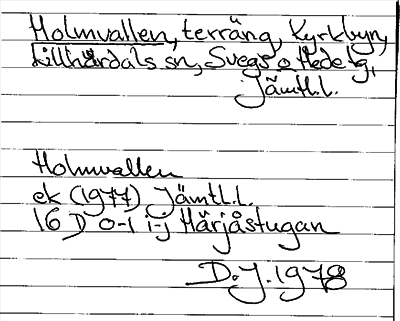 Holmvallen, terräng, Kyrkbyn,
Lillhärdals sn, Svegs o Hede tg,
Jämtl.l.
Holmvallen
ek (1977) Jämtl.l.
16 D 0-1 i-j Härjåstugan
D.J. 1978